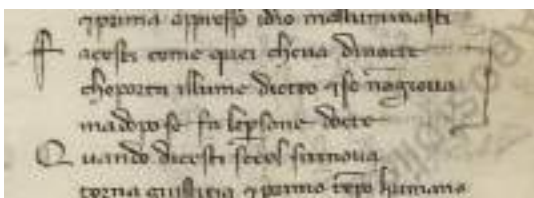 ⁊prima appresso idio malluminasti
Facesti come quei cheua dinocte
cheporta illume dietro ⁊se nōgioua
madopo se fa leꝑsone docte
Quando dicesti secol sirinoua
torna giustitia ⁊primo tēpo humano